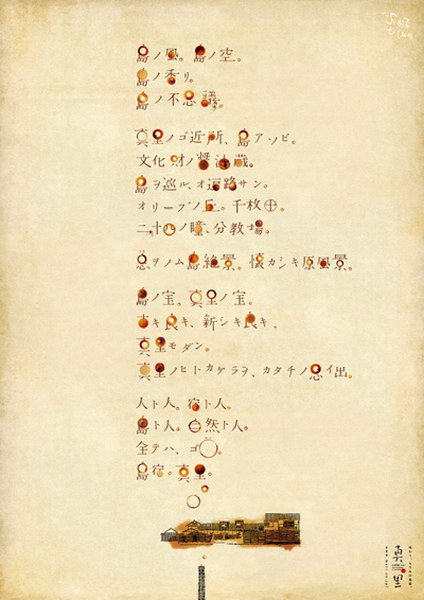 島ノ風。島ノ空。
島ノ香リ。
島ノ不思議。
真里ノゴ近所、島アソビ。
文化財ノ醤油蔵。
島ヲ巡ル、オ遍路サン。
オリーブノ丘。千枚田。
二十四ノ瞳、分教場。
息ヲノム島絶景。懐カシキ原風景。
島ノ宝。真里ノ宝。
古キ良キ、新シキ良キ、
真里モダン。
真里ノヒトカケラヲ、カタチノ思イ出。
人ト人。宿ト人。
島ト人。自然ト人。
全テハ、ゴ
島宿。真里。
真里